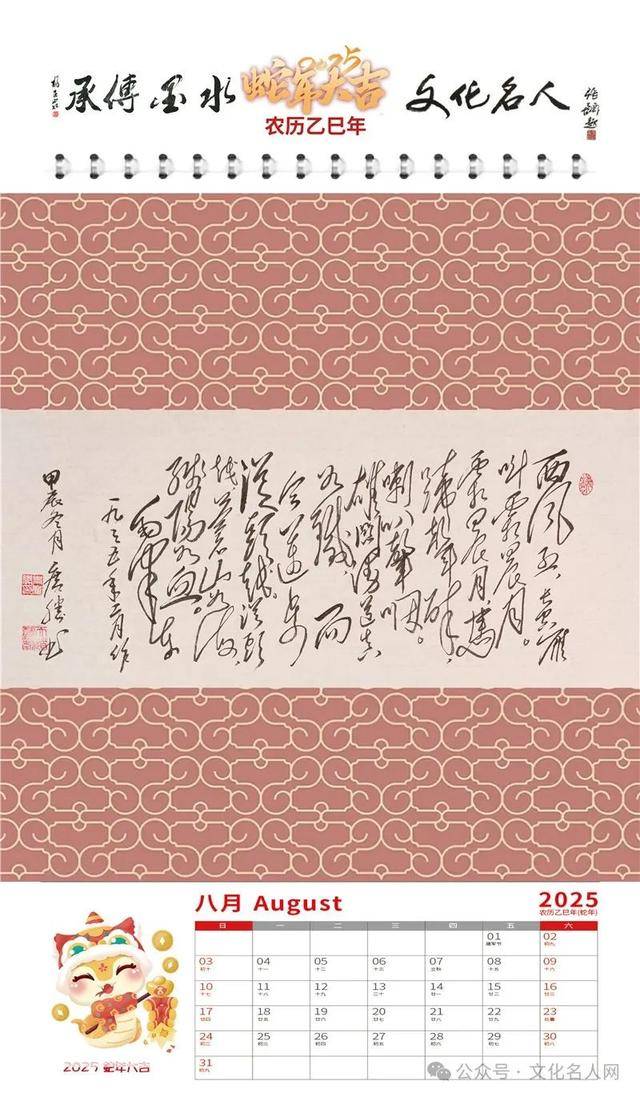 承傅墨水
2025
蛇年大吉
文化名人
农历乙巳年
西風烈，長空雁
叫霜晨月。
霜晨月，馬
蹄聲碎，
喇叭聲咽。
雄關漫道真
如鐵，而
今邁步
從頭越。從頭
越，蒼山如海，
殘陽如血。
毛澤東
一九三五年二月作
甲辰冬月
八月 August
2025
农历乙巳年(蛇年)
日 一 二 三 四 五 六
01 02
建军节 初九
03 04 05 06 07 08 09
初十 十一 十二 十三 立秋 十五 十六
10 11 12 13 14 15 16
十七 十八 十九 二十 廿一 廿二 廿三
17 18 19 20 21 22 23
廿四 廿五 廿六 廿七 廿八 廿九 处暑
24 25 26 27 28 29 30
初二 初三 初四 初五 初六 初七 初八
31
初九
2025 蛇年大吉
公众号·文化名人网